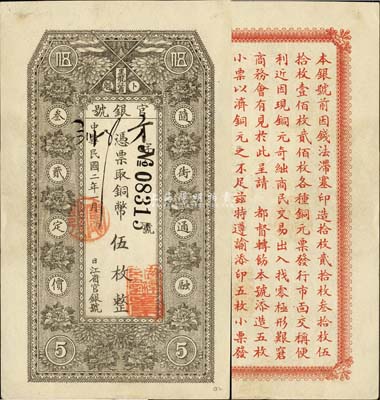 號銀官
憑票取銅幣伍枚整
№08315
號
中華民國二年 月
江省官銀號
隨街通融
叁貳定價
5
5
本銀號前因錢法滯塞印造拾枚貳拾枚叁拾枚伍
拾枚壹佰枚貳佰枚各種銅元票發行市面交稱便
利近因現銅元奇絀商民交易出入找零極形艱窘
商務會有見於此呈請 都督轉飭本號添造五枚
小票以濟銅元之不足茲特遵諭添印五枚小票發